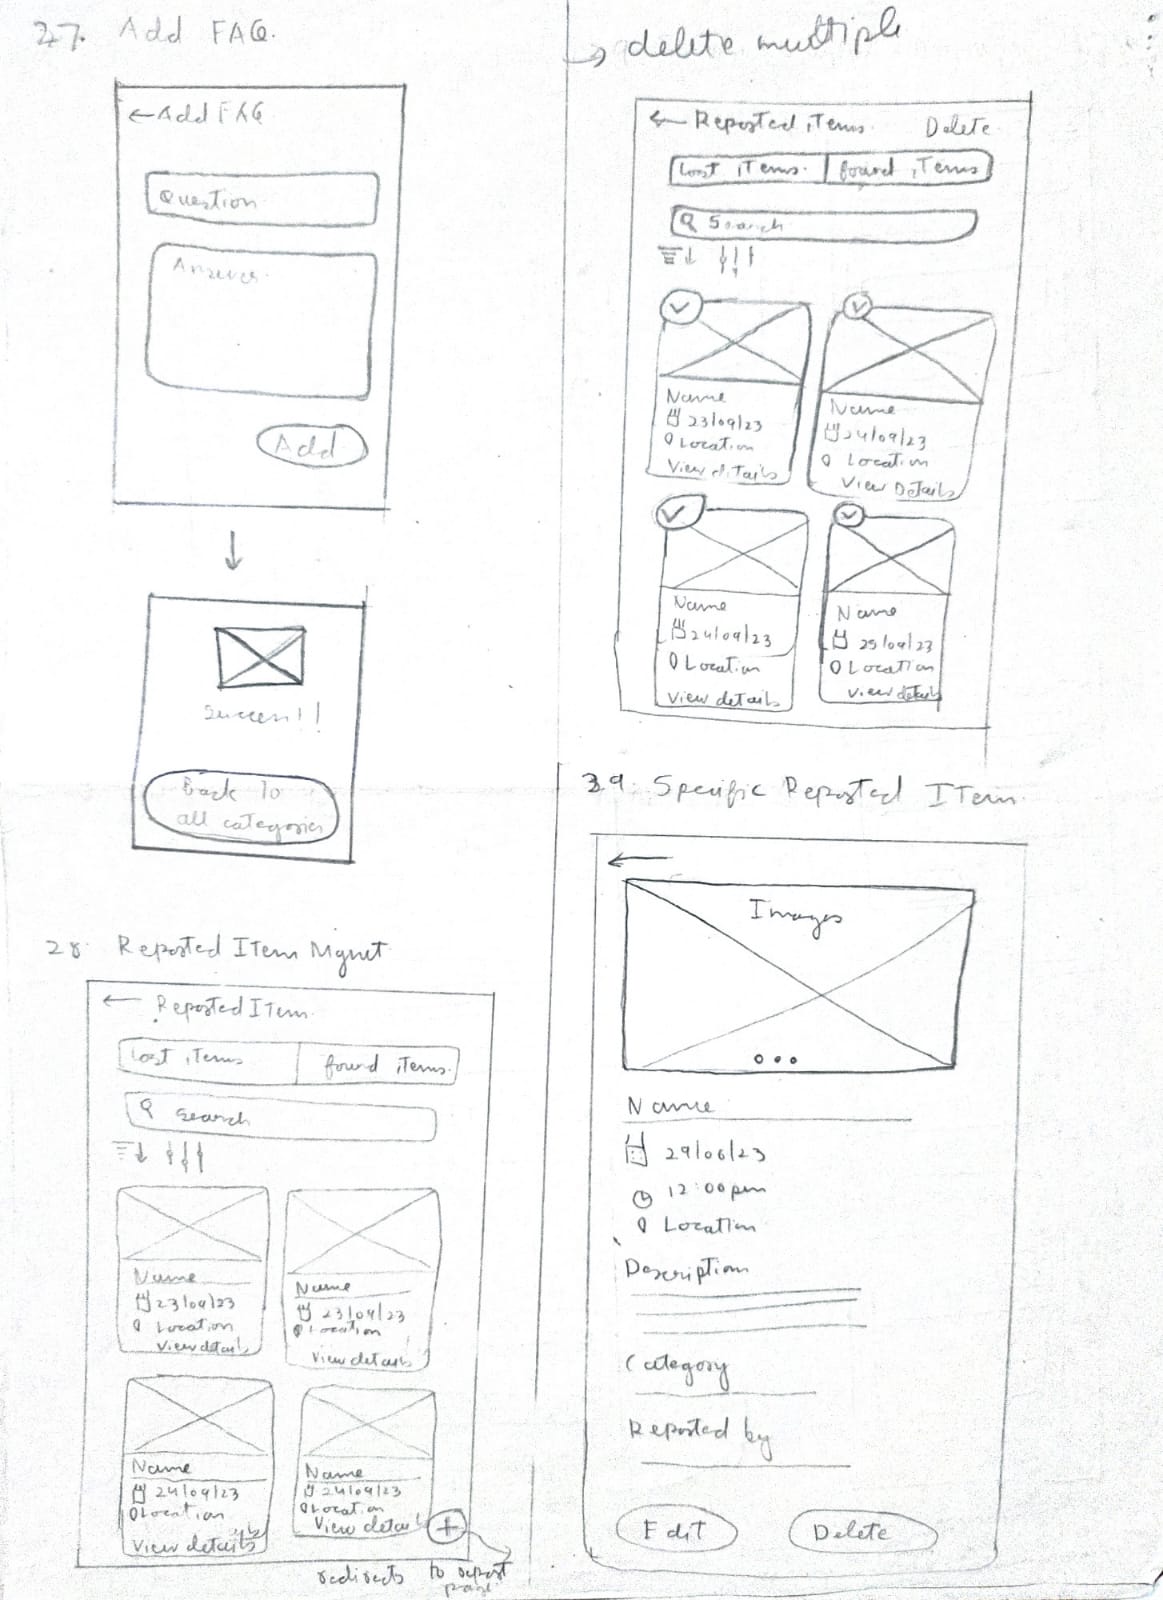 27. Add FAQ.
←Add FAQ
Question
Answer.
Add
Success!!
Back to
all categories
28. Reported Item Mgmt
← Reported Item
Lost items
found items.
Search
Name
23/09/23
Location
View details
Name
23/09/23
Location
View details
Name
24/09/23
Location
View details
Name
24/09/23
Location
View details
+
redirects to report
page
→ delete multiple
← Reported items. Delete
Lost items.
found items
Search
Name
23/09/23
Location
View details
Name
24/09/23
Location
View Details
Name
24/09/23
Location
View details
Name
25/09/23
Location
View details
29. Specific Reported Item
←
Images
Name
29/06/23
12:00pm
Location
Description
Category
Reported by
Edit
Delete